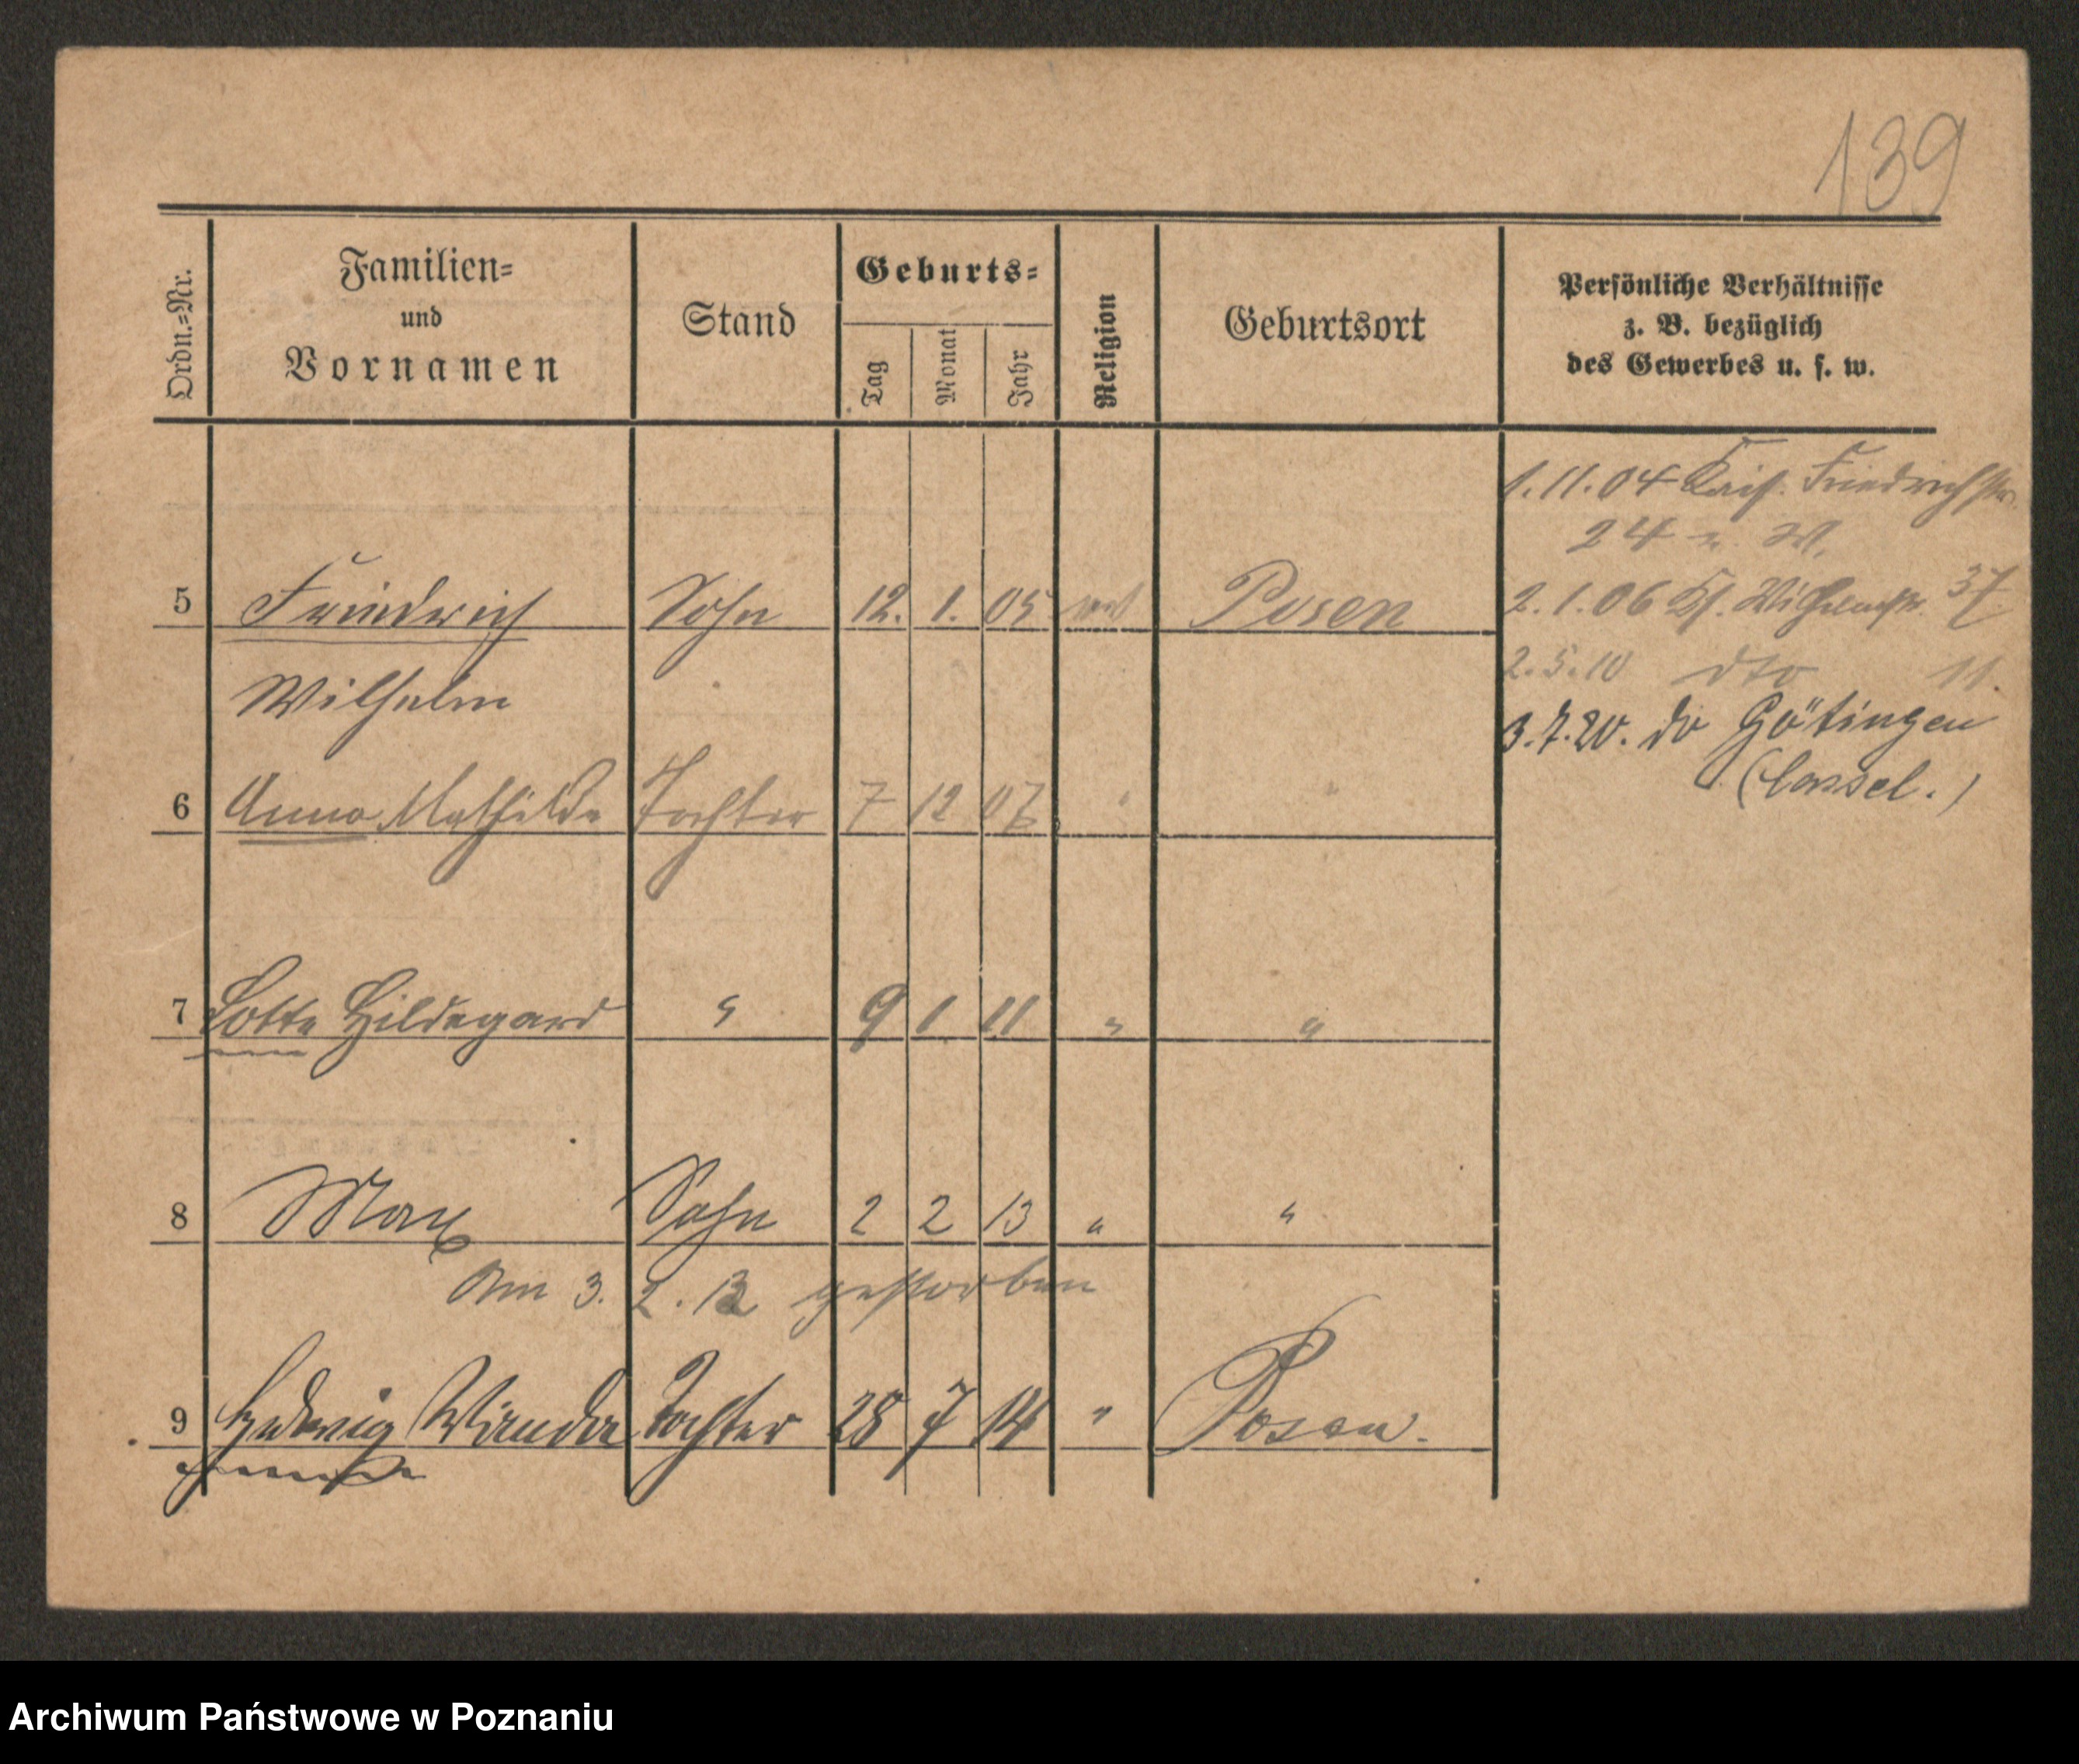 139
Ordn.=Nr.
Familien=
und
Vornamen
Stand
Geburts=
Tag
Monat
Jahr
Religion
Geburtsort
Persönliche Verhältnisse
z. B. bezüglich
des Gewerbes u. s. w.
1.11.04 Kais. Friedrichstr.
24 W.
5 Friedrich Sohn 12. 1. 05 Posen
2.1.06 Wilhelmstr. 37
Wilhelm
2.5.10 dto 11.
3.7.20. do Götingen
(Cassel.)
6 Anna Mathilde Tochter 7 12 07 " "
7 Lotte Hildegard " 9 1 11 " "
8 Max Sohn 2 2 13 " "
Am 3. 2. 13 gestorben
9 Hedwig Wanda Tochter 28 7 14 " Posen.
Archiwum Państwowe w Poznaniu